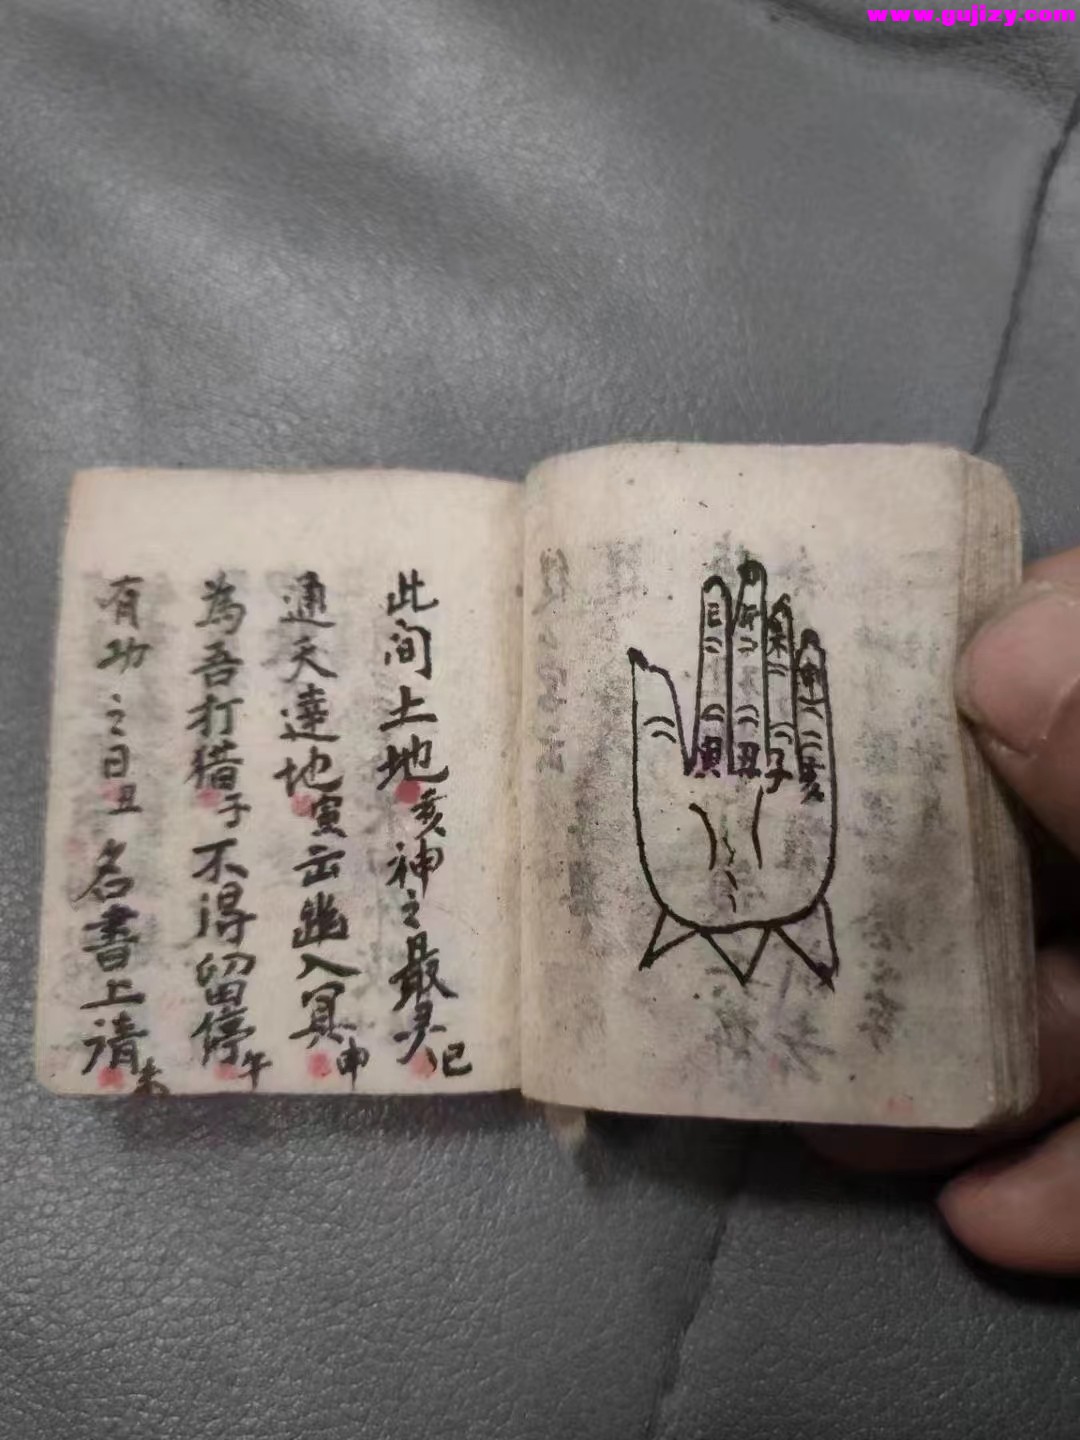 www.gujizy.com
巳 午 未 申
寅 丑 子 亥
此间土地亥神之最灵巳
通天達地寅出幽入冥申
為吾打猎子不得留停午
有功之日丑名書上请未